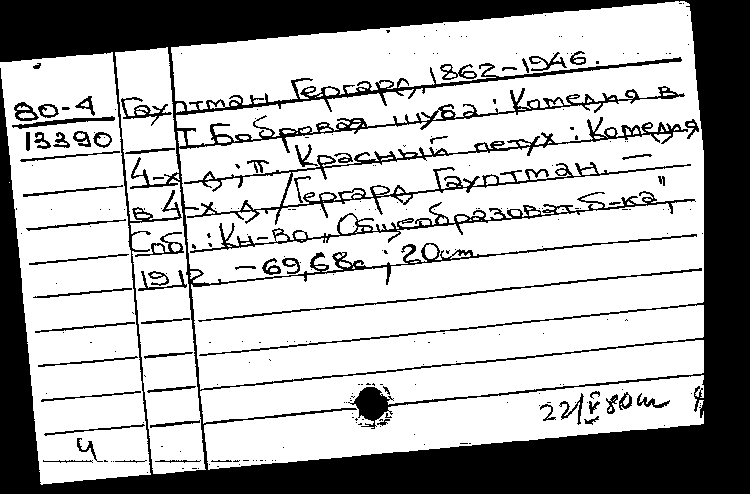 80-4 Гауптман, Гергард, 1862-1946.
13390 I. Бобровая шуба : Комедия в
4-х д ; II. Красный петух : Комедия
в 4-х д. / Гергард Гауптман. —
Спб. : Кн-во „Общеобразоват. б-ка",
1912. - 69, 68с ; 20см.
22/V 80
4